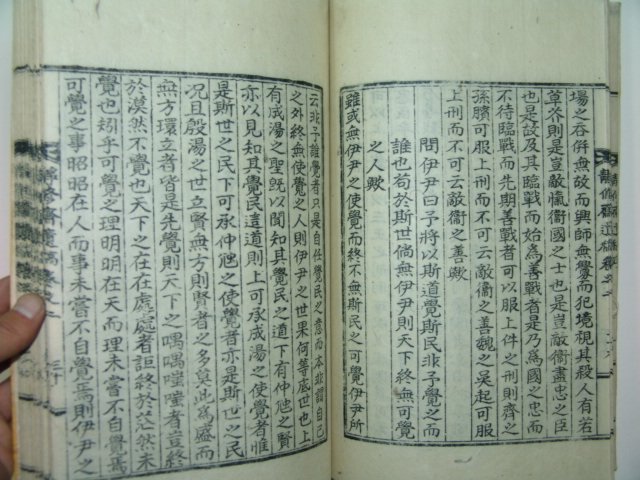 場之吞倂無故而興師無釁而犯境視其殺人有若
草芥則是豈敵愾國之士也是豈敵愾盡忠之臣
也是故及其臨戰而始爲善戰者是乃爲國之忠而
不待臨戰而先期善戰者可服上件之刑則齊之
孫臏可服上刑而不可云敵愾之善魏之吳起可服
上刑而不可云敵愾之善歟
問伊尹曰予將以斯道覺斯民非予覺之而
誰也苟於斯世倘無伊尹則天下終無可覺
之人歟
雖或無伊尹之使覺而終不無斯民之可覺伊尹所
云非予誰覺者只是自任覺民之意而本非謂自己
之外終無使覺之人則伊尹之世果何等底世也上
有成湯之聖旣以聞知其覺民之道下有仲虺之賢
亦以見知其覺民這道則上可承成湯之使覺者惟
是斯世之民下可承仲虺之使覺者亦是斯世之民
况且殷湯之世立賢無方則賢者之多莫此爲盛而
無方環立者皆是先覺則天下之喁喁嗤嗤者豈終
於漠然不覺也天下之在在處處者詎終於茫然未
覺也矧乎可覺之理明明在天而理未嘗不自覺焉
可覺之事昭昭在人而事未嘗不自覺焉則伊尹之